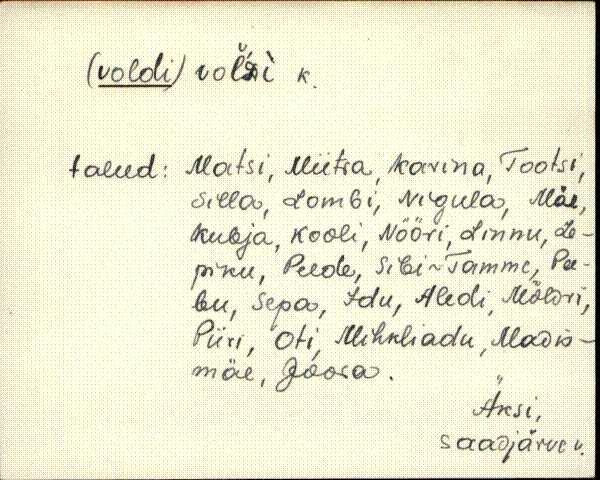 (voldi) vol'ži̮ k.
talud: Matsi, Mütsa, Karina, Tootsi,
Silla, Lombi, Nigula, Mäe,
Kubja, Kooli, Nööri, Linnu, Le-
piku, Peede, Sibi ~ Tamme, Pee-
bu, Sepa, Idu, Aledi, Möldri,
Piiri, Oti, Mihkliadu, Madis-
mäe, Joosa.
Äksi,
Saadjärve v.